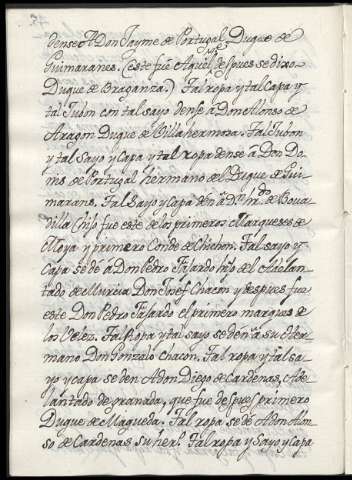 dense A Don Jayme de Portugal, Duque de
Guimaranes. (Este fue Aquel despues se dixo
que
Duque de Braganza.) Tal ropa y tal capa y
tal Jubon con tal sayo dense a Don Alonso de
Aragon Duque de Villahermosa. Tal Jubon
y tal sayo y capa y tal ropa dense a Don Do-
nis de Portugal hermano del Duque de Gui-
marans. Tal sayo y capa den a Dn. de Boua
dilla Chijo fue este de los primeros Marqueses de
Moya y primero Conde de Chichon. Tal sayo y
capa se dé a Don Pedro Fajardo hijo del Adelan-
tado de Murcia Don Josef Chacon y despues fue
este Don Pedro Fajardo el primero marques de
los Velez. Tal Ropa y tal sayo se den a su Her-
mano Don Gonzalo Chacon. Tal ropa y tal sa-
yo y capa se den A don Diego de Cardenas, Ade
lantado de granada, que fue despues primero
Duque de Maqueda. Tal ropa se dé A don Alon-
so de Cardenas su herº. Tal ropa y sayo y capa